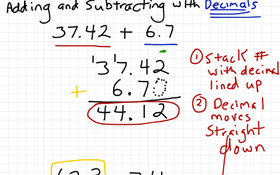 Adding and Subtracting with Decimals
37.42 + 6.7
¹3¹7.42
+ 6.70
44.12
① Stack #
with decimal
lined up
② Decimal
moves
straight
down